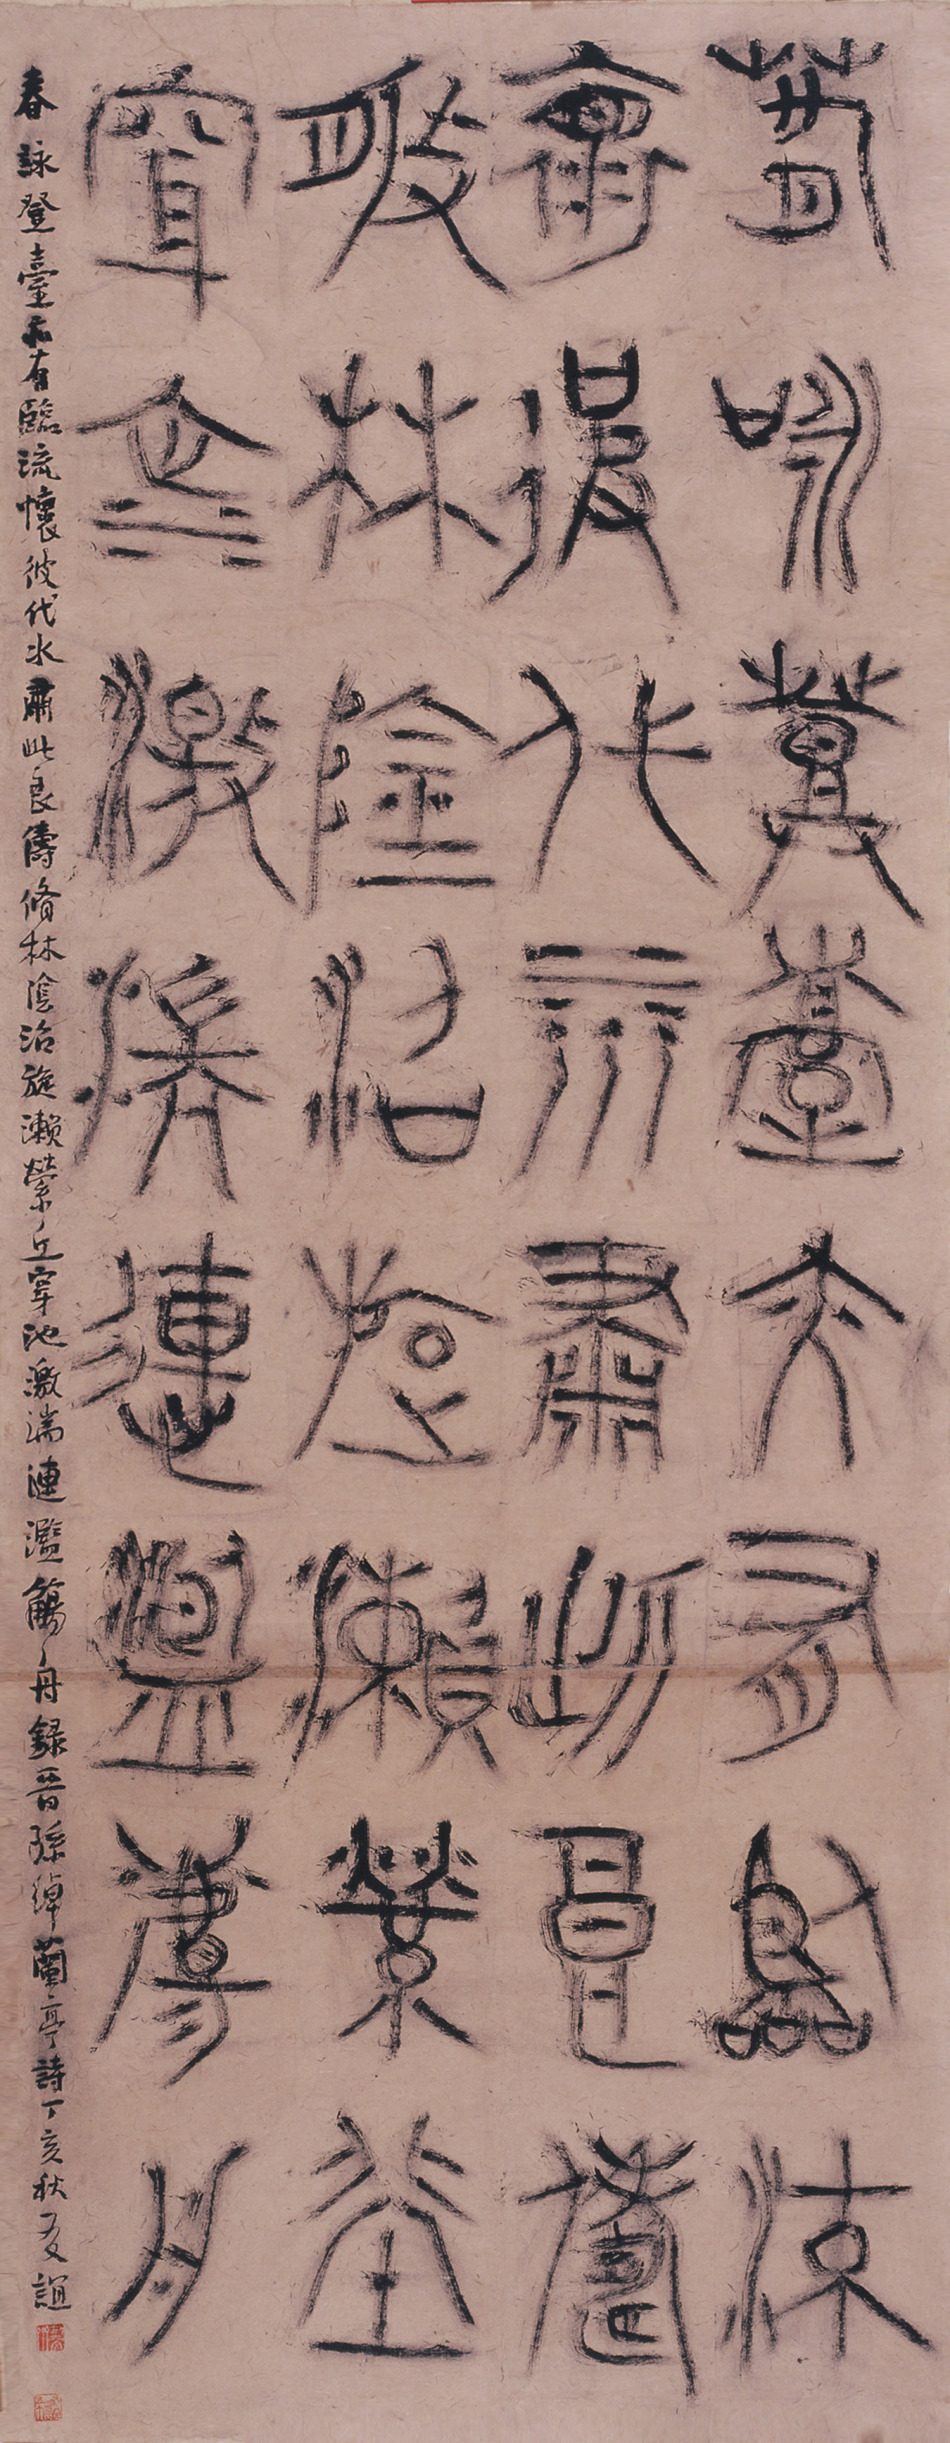 春詠登臺亦有臨流
懷彼代水肅此良儔
脩林陰沼旋瀨縈丘
穿池激湍連濫觴舟
春詠登臺亦有臨流懷彼代水肅此良儔脩林陰沼旋瀨縈丘穿池激湍漣濫觴舟錄晉孫綽蘭亭詩丁亥秋友誼